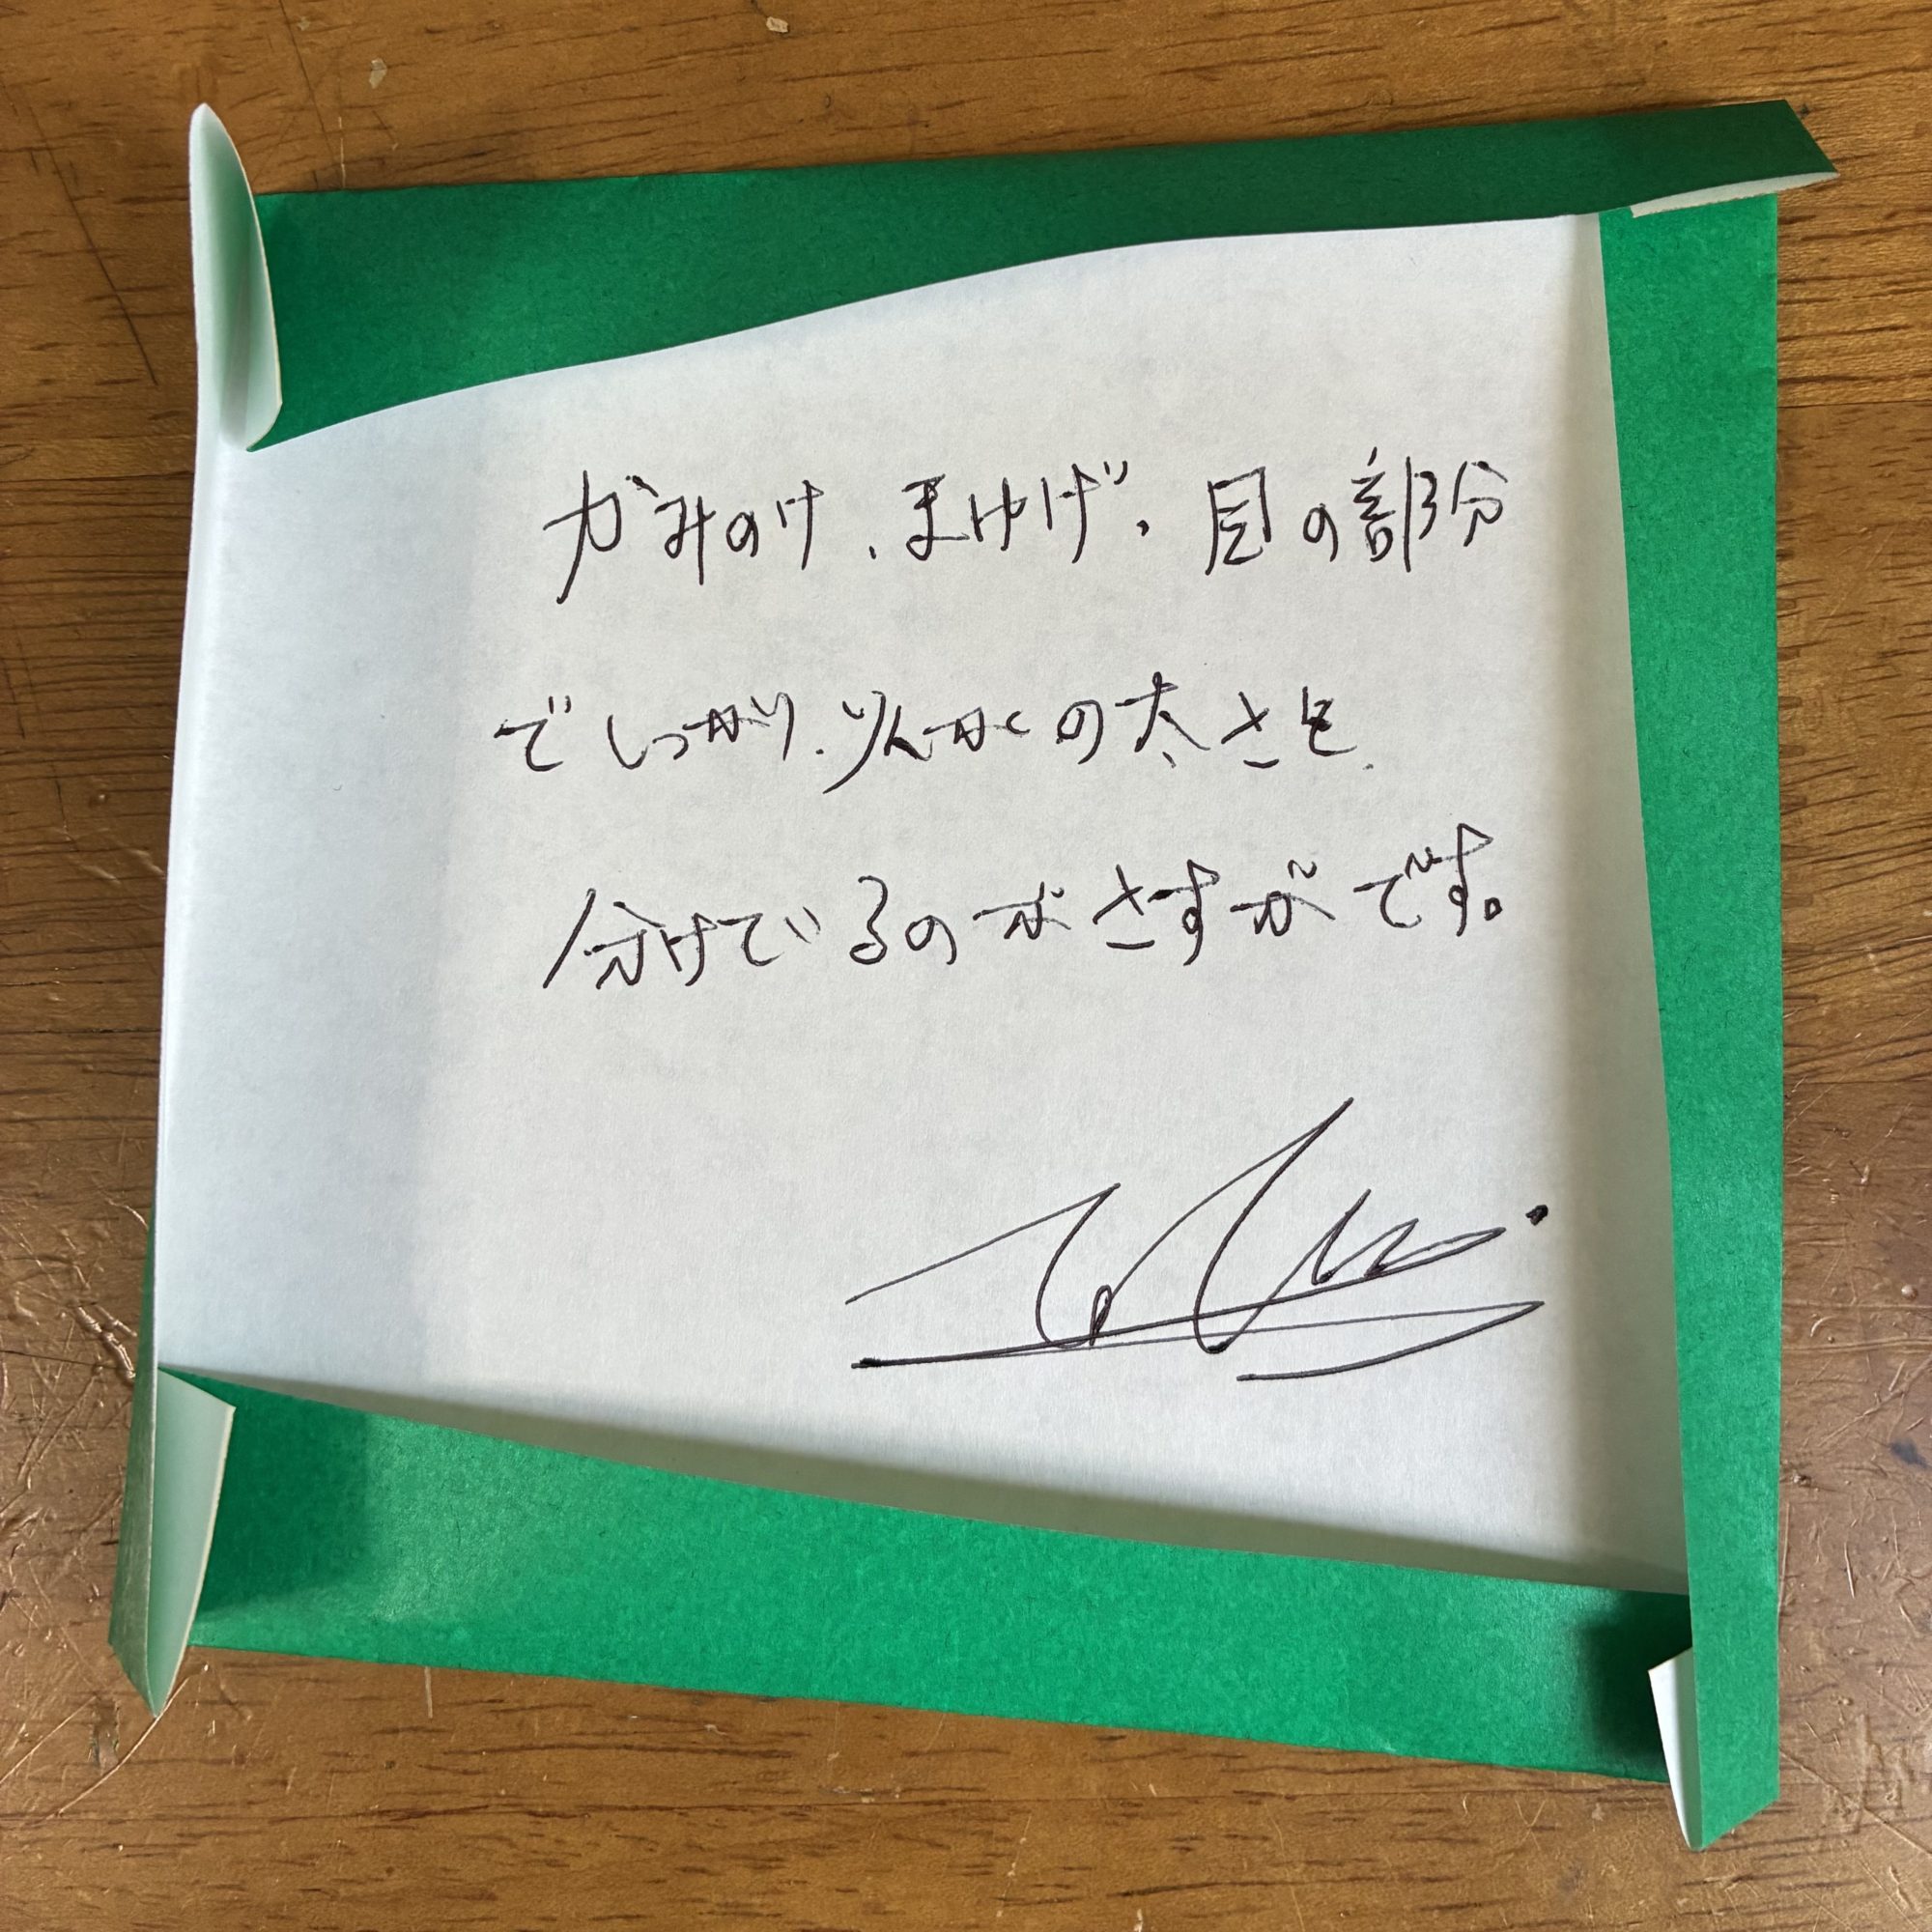 かみのけ、まゆげ、目の部分
でしっかり、りんかくの太さを
分けているのがさすがです。